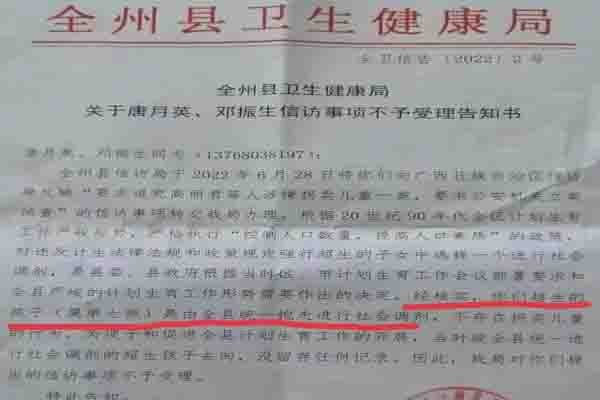 全州县卫生健康局
全卫信告〔2022〕2号
全州县卫生健康局
关于唐月英、邓振生信访事项不予受理告知书
唐月英、邓振生同志(13768038197):
全州县信访局于2022年6月28日将你们向广西壮族自治区信访
局反映“要求追究高丽君等人涉嫌拐卖儿童一案,要求公安机关立案
侦查”的信访事项转交我局办理。根据20世纪90年代全区计划生育
工作严峻形势,严格执行“控制人口数量,提高人口素质”的政策,
对违反计生法律法规和政策规定强行超生的子女中选择一个进行社会
调剂,是县委、县政府根据当时区、市计划生育工作会议部署要求和
全县严峻的计划生育工作形势需要作出的决定。经核实,你们超生的
孩子(属第七孩)是由全县统一抱走进行社会调剂,不存在拐卖儿童
的行为。为便于和促进全县计划生育工作的开展,当时被全县统一进
行社会调剂的超生孩子去向,没留存任何记录。因此,我局对你们提
出的信访事项不予受理。
特此告知。